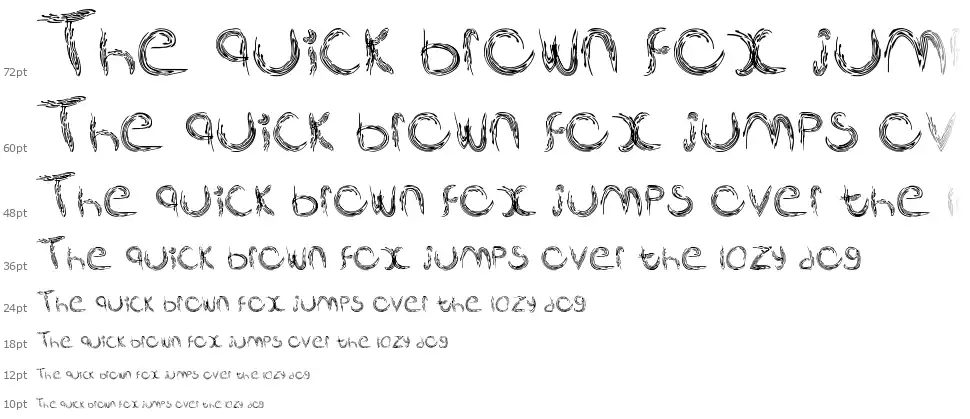 72pt The quick brown fox jum
60pt The quick brown fox jumps ov
48pt The quick brown fox jumps over the
36pt The quick brown fox jumps over the lazy dog
24pt The quick brown fox jumps over the lazy dog
18pt The quick brown fox jumps over the lazy dog
12pt The quick brown fox jumps over the lazy dog
10pt The quick brown fox jumps over the lazy dog